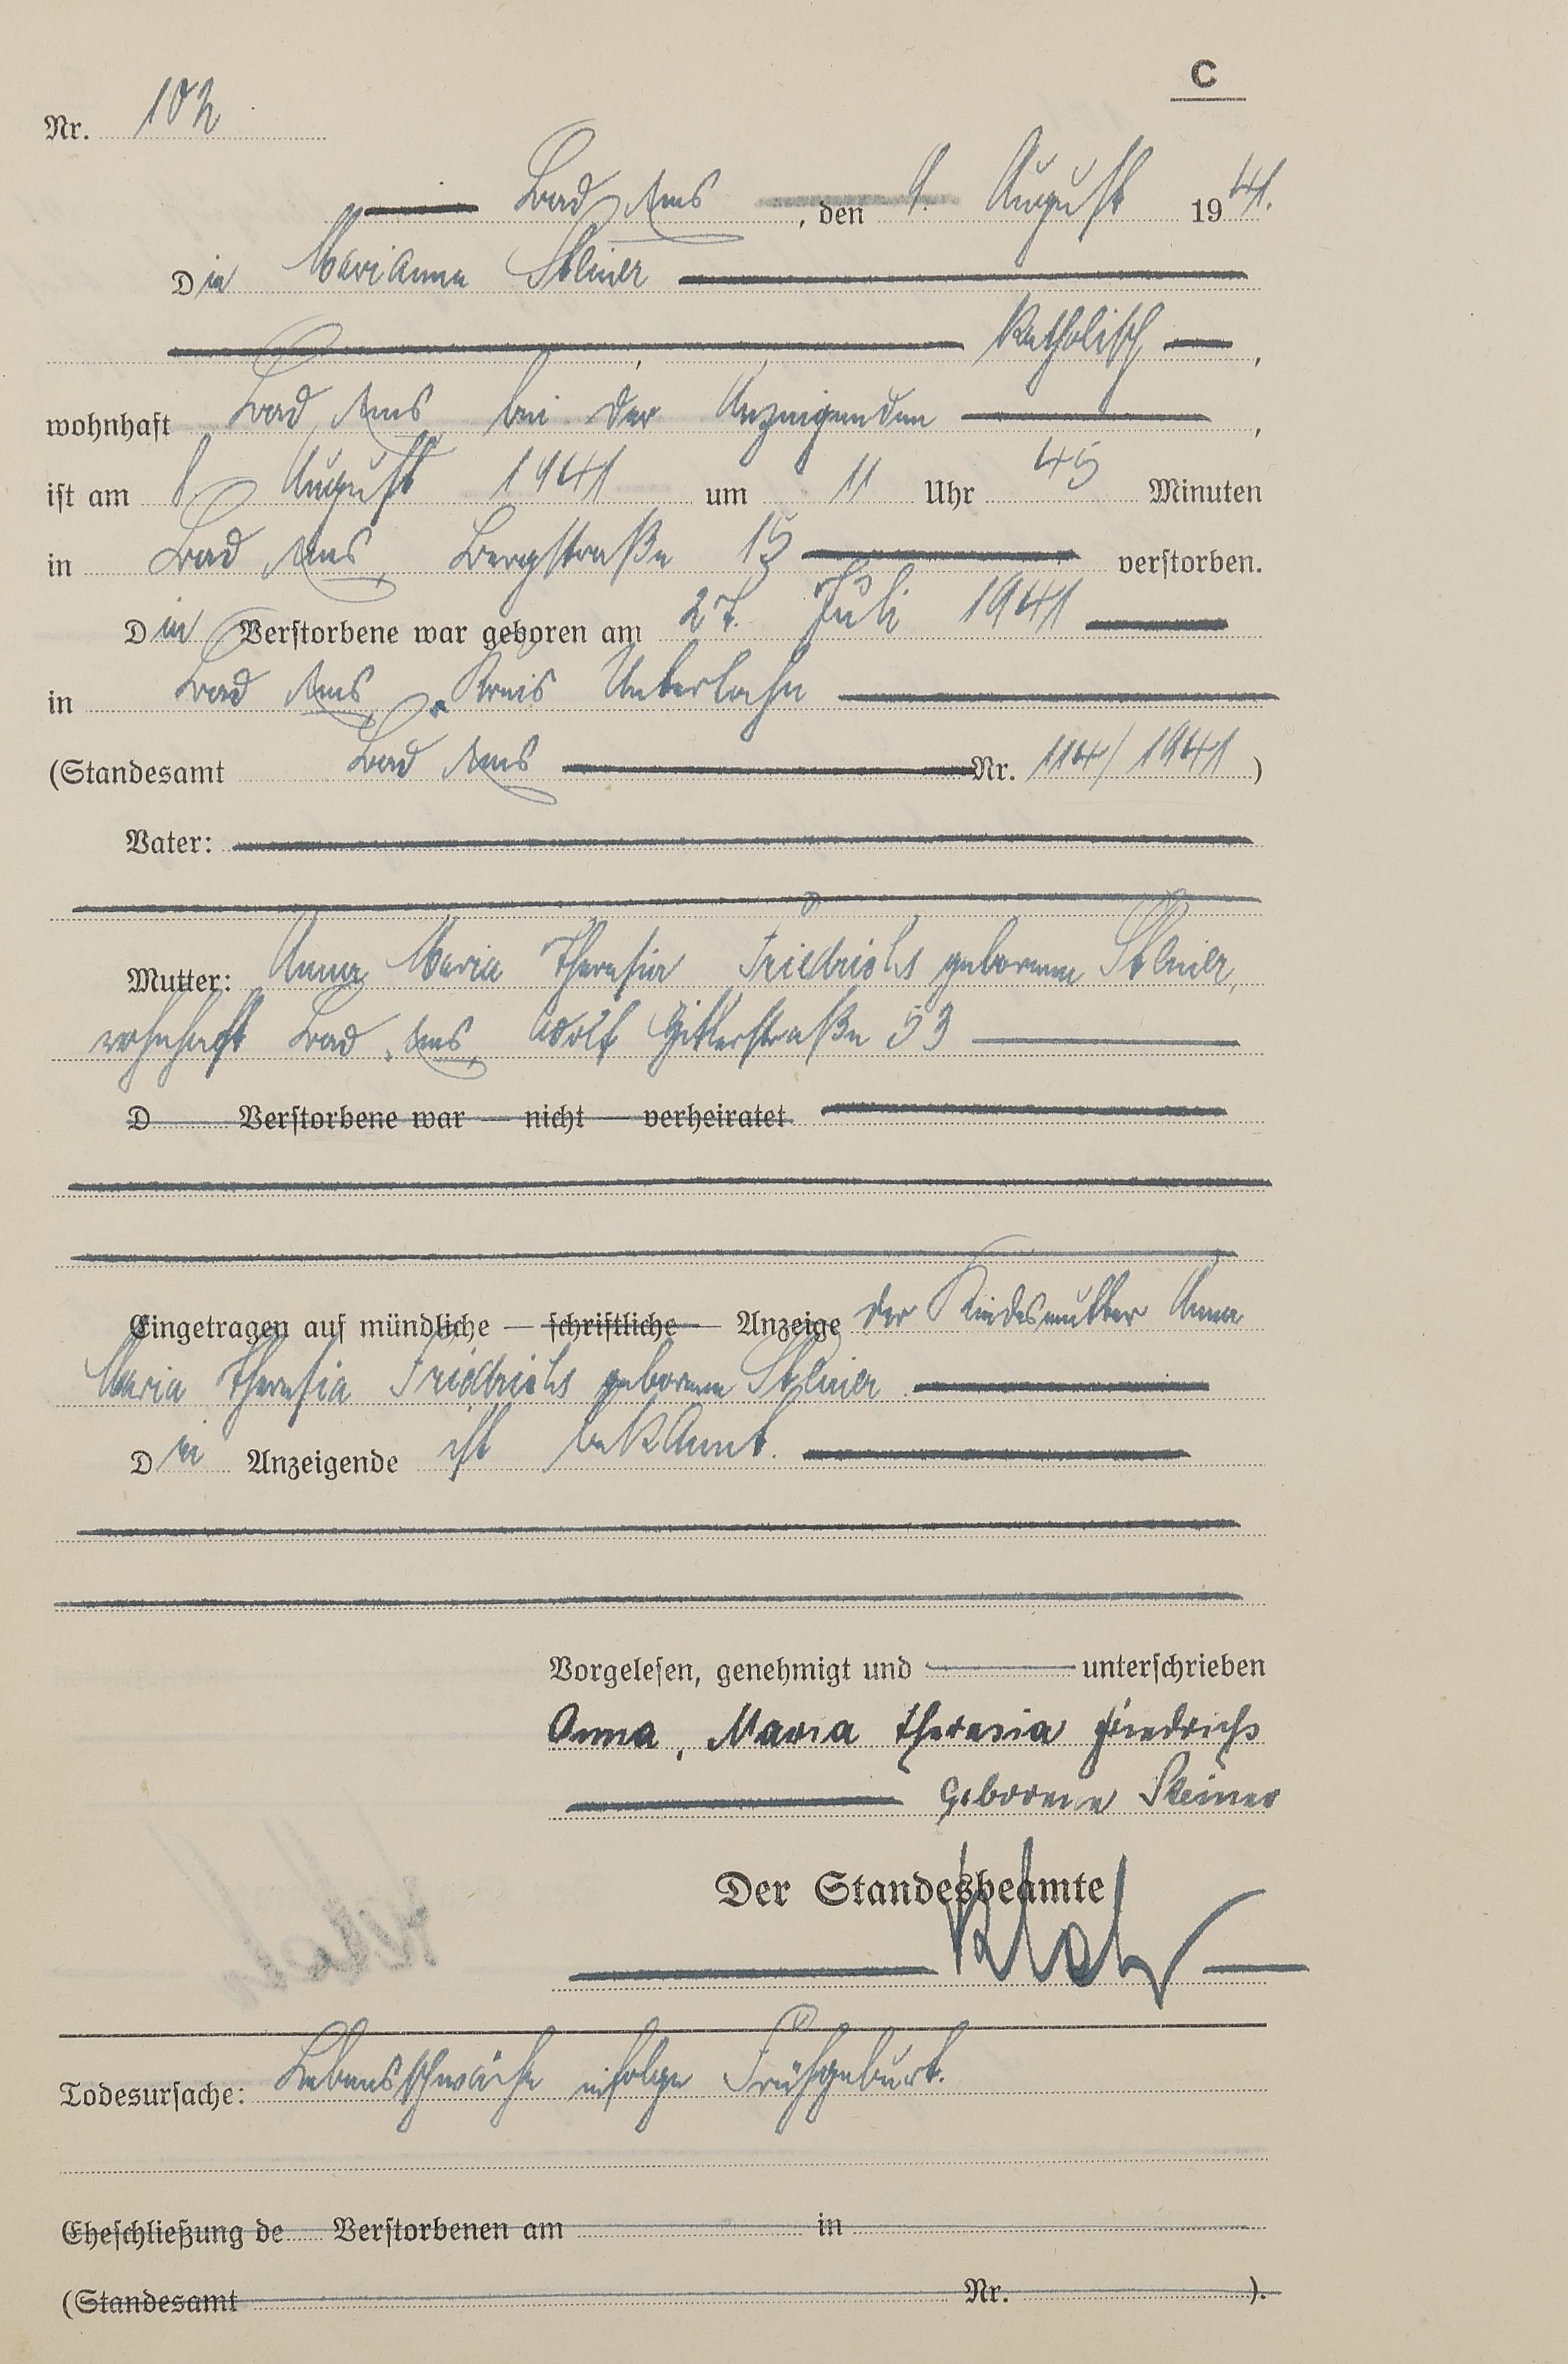 C
Nr. 102
Bad Ems, den 9. August 1941.
Die Marianna Steiner
katholisch,
wohnhaft Bad Ems bei der Anzeigenden,
ist am 8. August 1941 um 11 Uhr 45 Minuten
in Bad Ems, Bergstraße 15 verstorben.
Die Verstorbene war geboren am 27. Juli 1941
in Bad Ems, Kreis Unterlahn
(Standesamt Bad Ems Nr. 114/1941)
Vater:
Mutter: Anna Maria Theresia Friedrichs geborene Steiner,
wohnhaft Bad Ems, Adolf Hitlerstraße 53
D Verstorbene war — nicht — verheiratet
Eingetragen auf mündliche — schriftliche — Anzeige der Kindesmutter Anna
Maria Theresia Friedrichs geborene Steiner
Die Anzeigende ist bekannt.
Vorgelesen, genehmigt und unterschrieben
Anna, Maria Theresia Friedrichs
Geborene Steiner
Der Standesbeamte
Todesursache: Lebensschwäche infolge Frühgeburt.
Eheschließung de Verstorbenen am in
(Standesamt Nr. ).